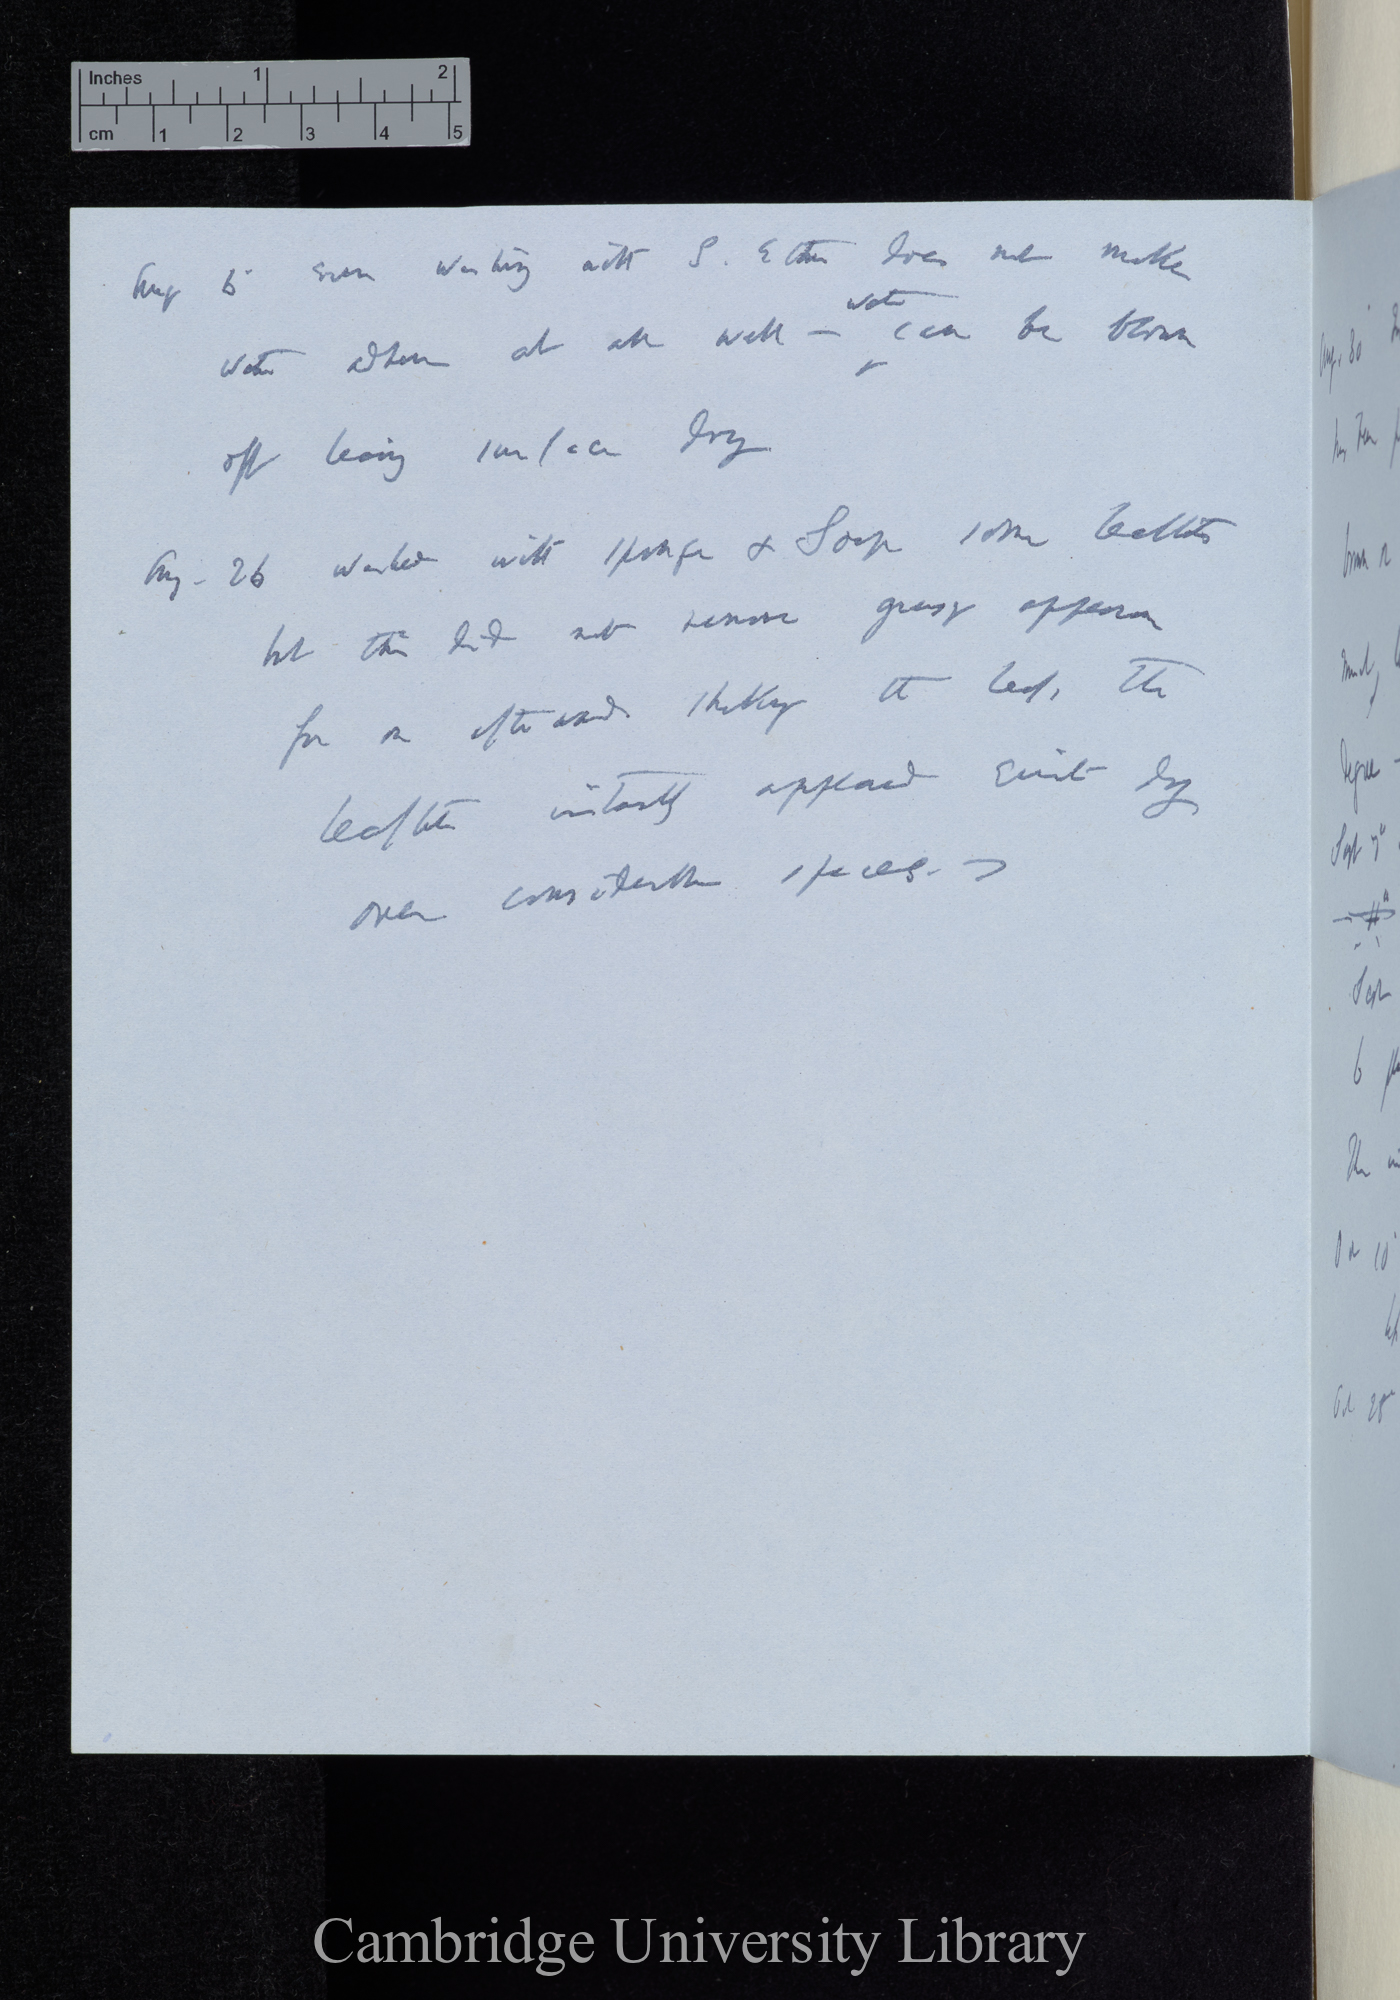 Inches 1 2
cm 1 2 3 4 5
Aug 5 even washing with S. Ether does not make
water adhere at all well — water can be blown
off leaving surface dry
Aug. 26 washed with sponge & Soap some leaflets
but this did not remove greasy appearance
for on afterwards shaking the leaf, the
leaflets instantly appeared quite dry
over considerable spaces.
Aug. 30
Sept 7
Sept
6
The
On 10
Oct 28
Cambridge University Library